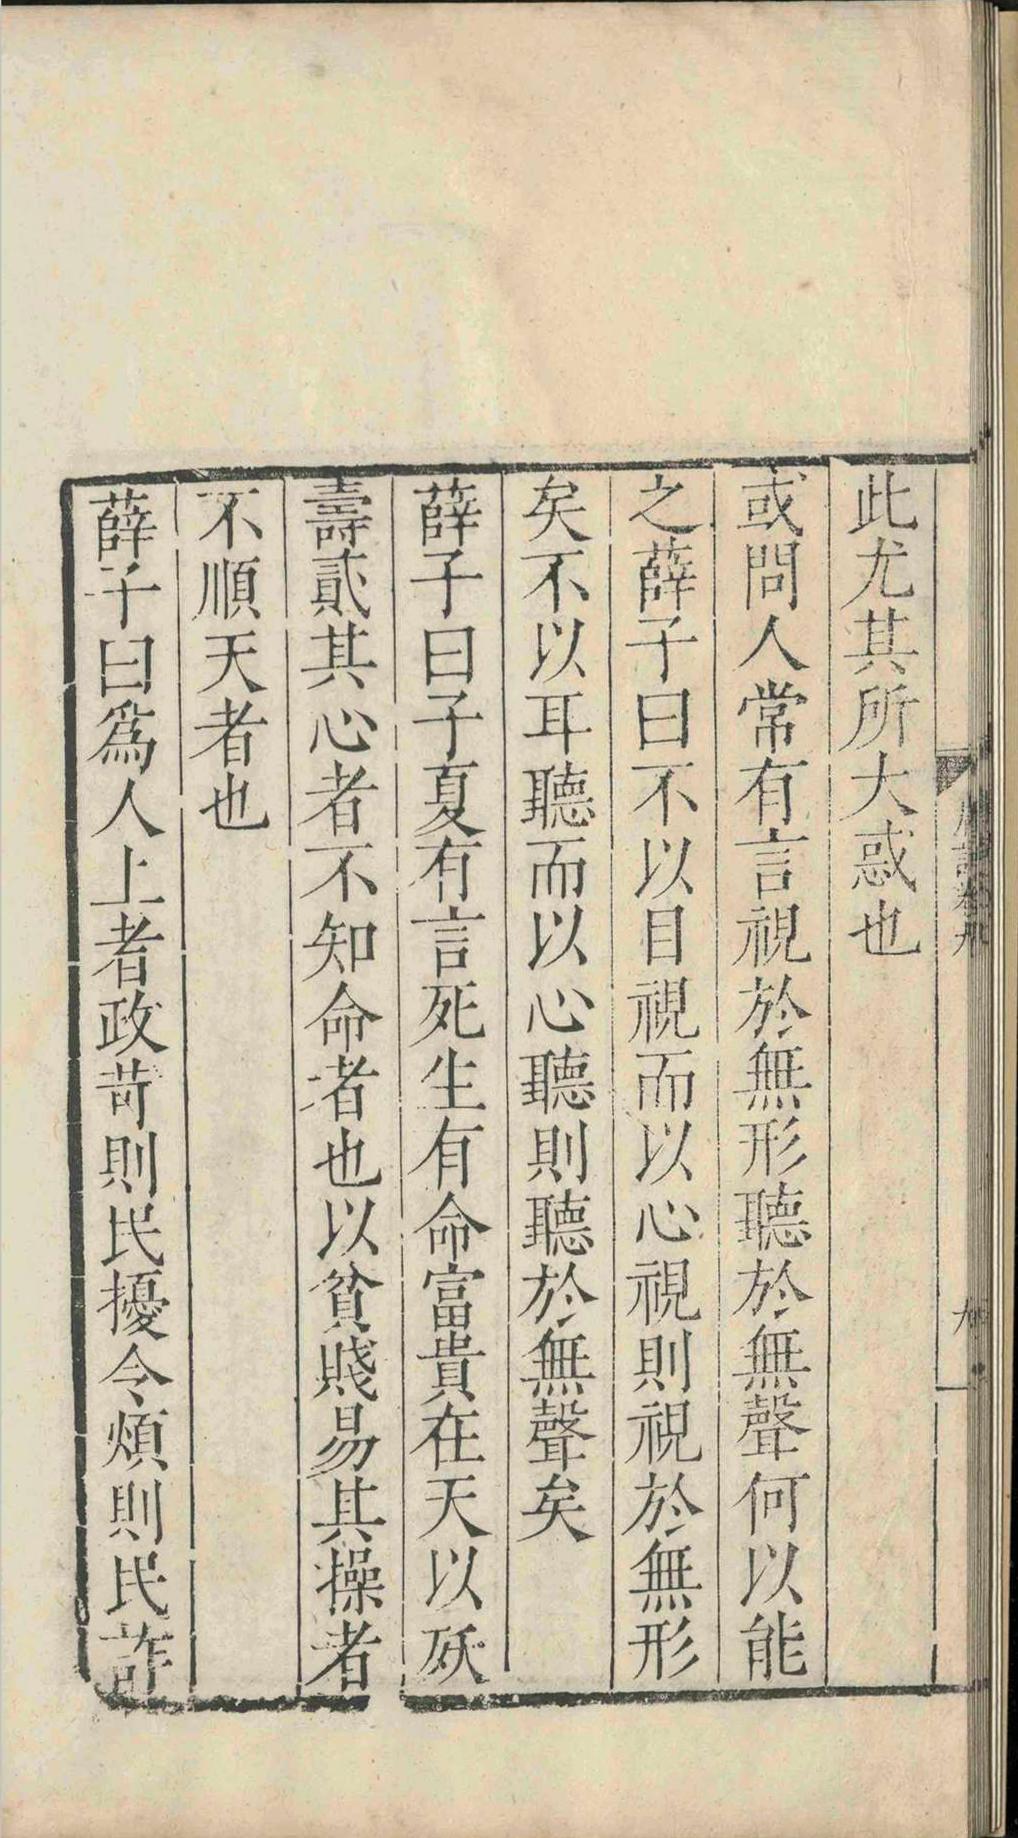 此尤其所大惑也
或問人常有言視於無形聽於無聲何以能
之薛子曰不以目視而以心視則視於無形
矣不以耳聽而以心聽則聽於無聲矣
薛子曰子夏有言死生有命富貴在天以殀
壽貳其心者不知命者也以貧賤易其操者
不順天者也
薛子曰爲人上者政苛則民擾令煩則民詐